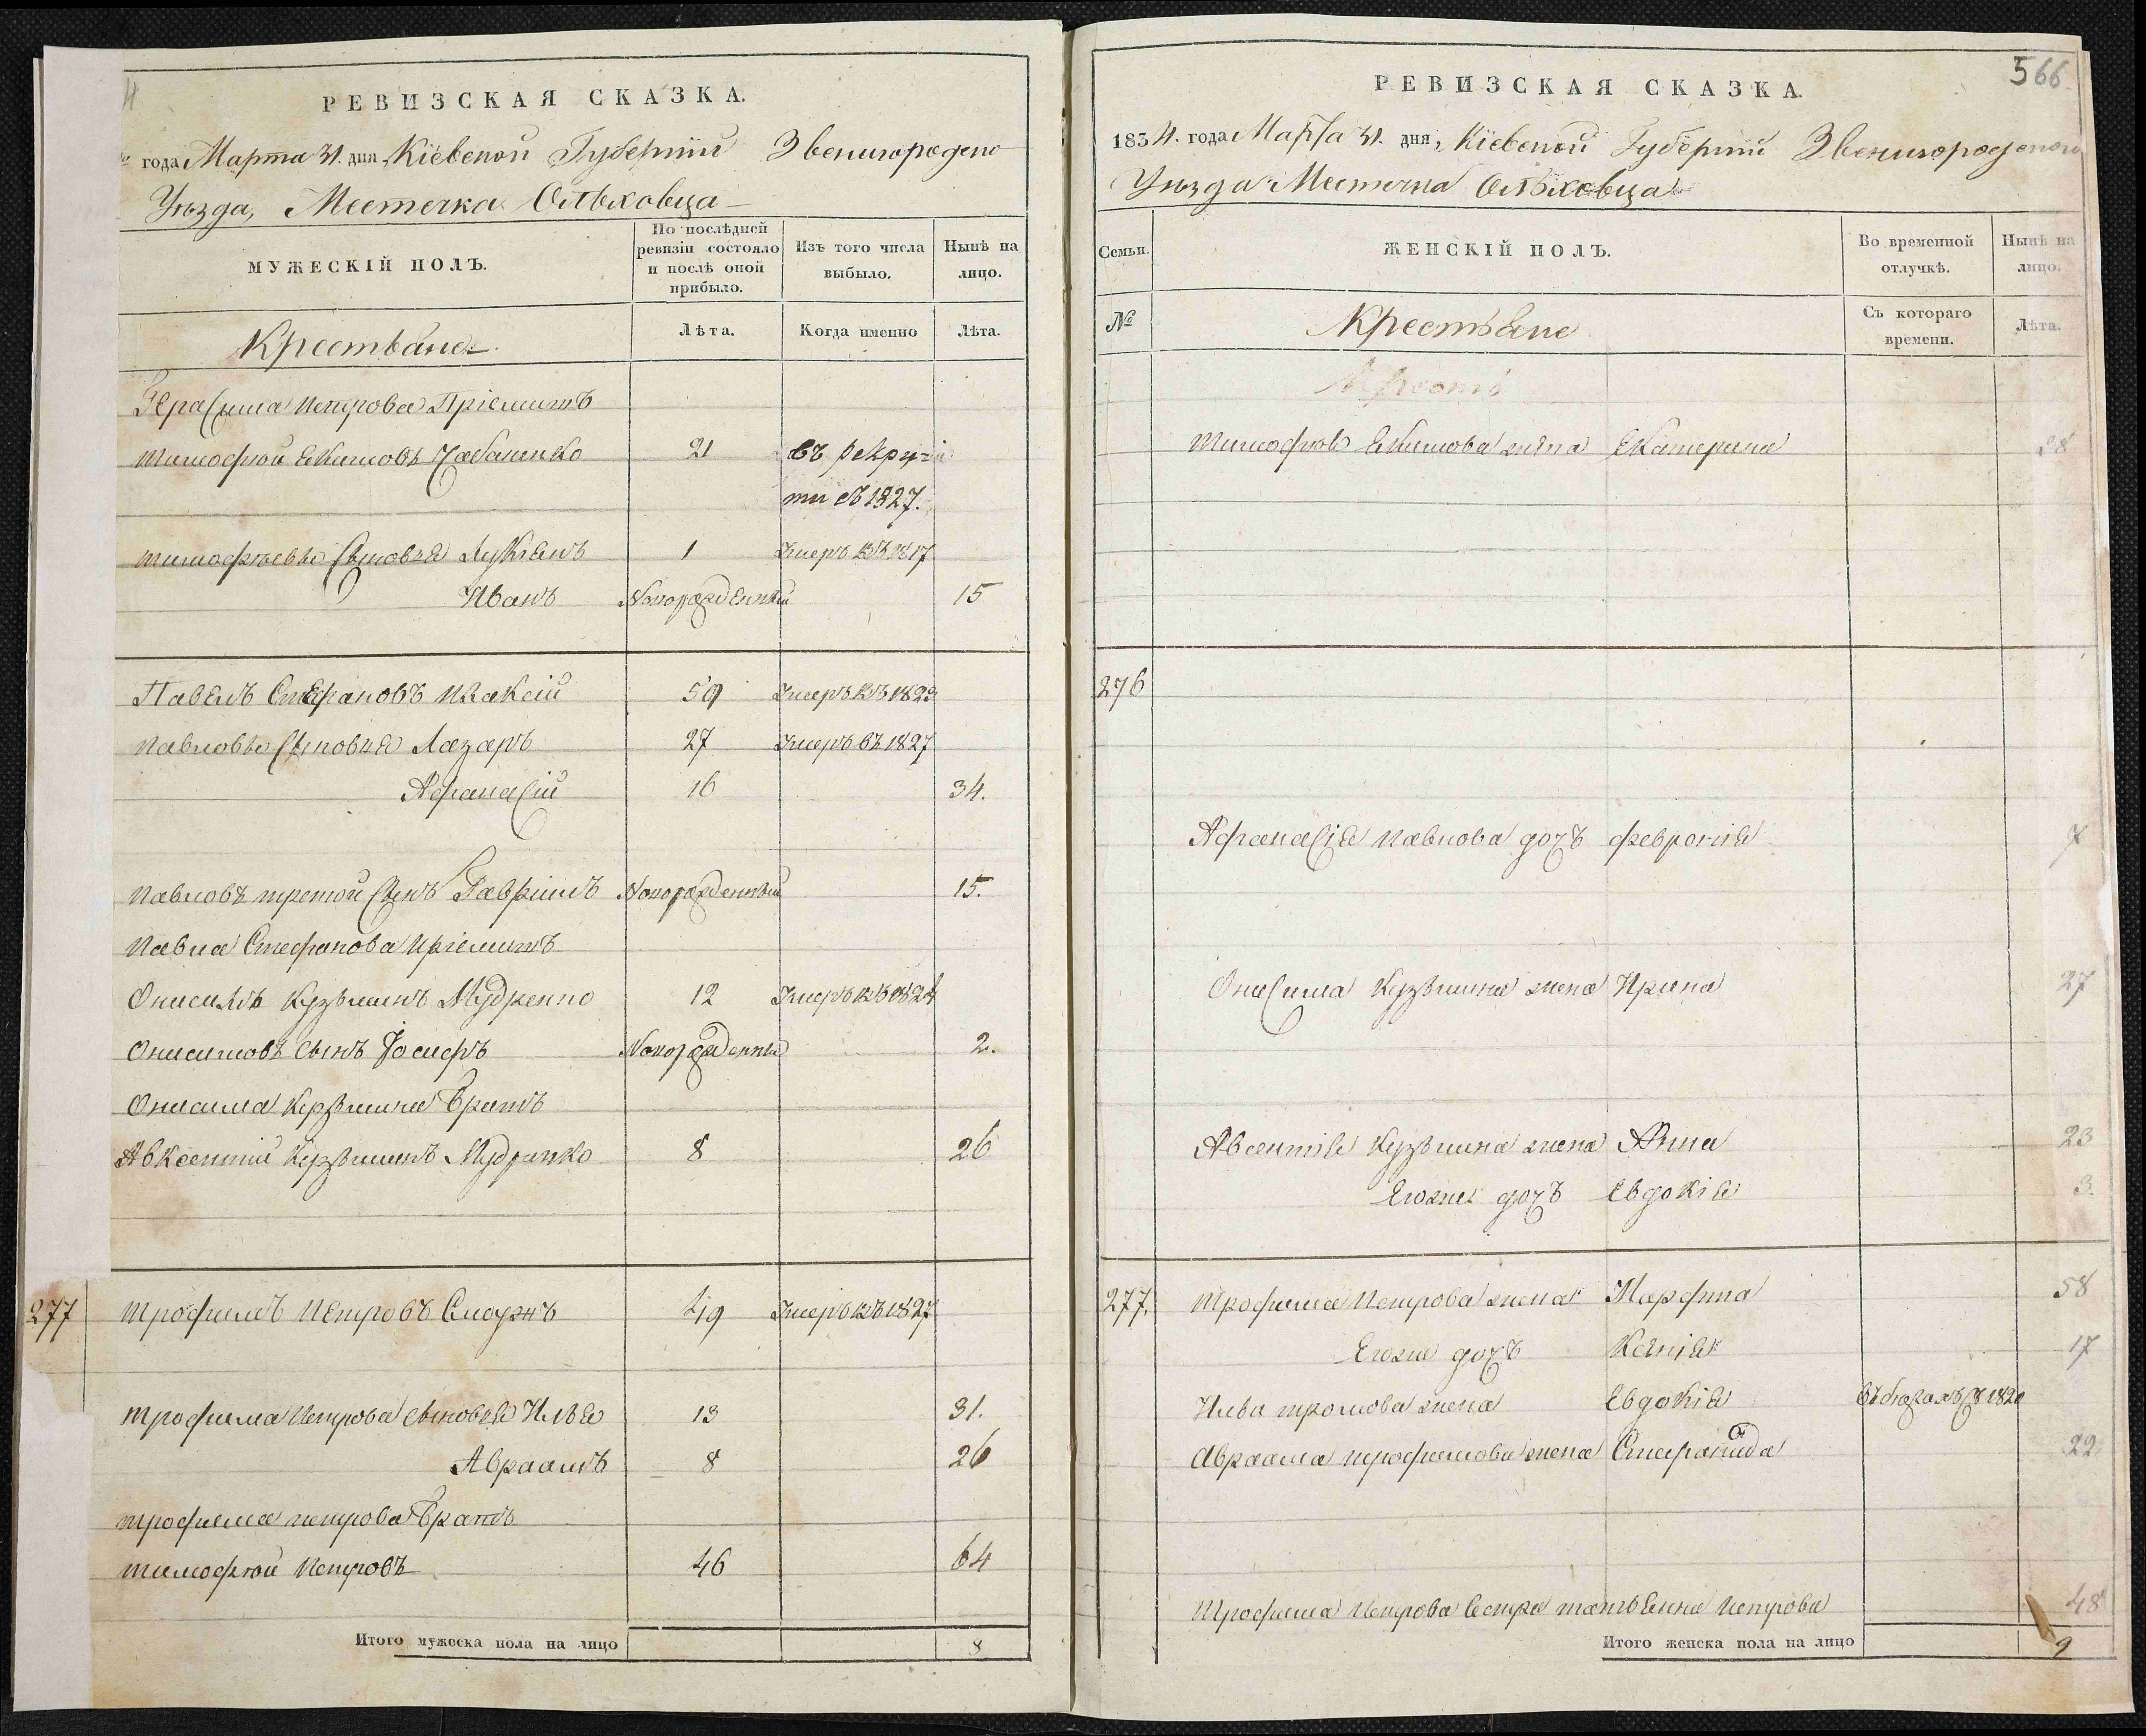 РЕВИЗСКАЯ СКАЗКА.
года Марта 31. дня, Кіевской Губерніи Звенигородско
Уѣзда, Местечка Ольховца
МУЖЕСКІЙ ПОЛЪ.
По послѣдней ревизіи состояло и послѣ оной прибыло.
Изъ того числа выбыло.
Нынѣ на лицо.
Крестьяне
Лѣта.
Когда именно
Лѣта.
Герасима Петрова Пріемышъ
Тимофей Екимовъ Чабаненко 21 въ рекру=
ти съ 1827.
Тимофѣевы сыновья Лукіянъ 1 Умеръ въ 1817
Иванъ Новорожденный 15
Павелъ Стефановъ 59 Умеръ въ 1823
Павловы сыновья Лазарь 27 Умеръ въ 1827
Афанасій 16 34.
Павловъ третой сынъ Гавріилъ Новорожденный 15.
Павла Стефанова пріемышъ
Онисимъ Кузьминъ Мудренко 12 Умеръ въ 1824
Онисимовъ сынъ Іосифъ Новорожденный 2.
Онисима Кузьмина братъ
Авксентій Кузьминъ Мудренко 8 26
277 Трофимъ Петровъ 49 Умеръ въ 1827
Трофима Петрова сыновья Илья 13 31.
Авраамъ 8 26
Трофима Петрова братъ
Тимофей Петровъ 46 64
Итого мужеска пола на лицо 8
566
РЕВИЗСКАЯ СКАЗКА.
1834. года Марта 31. дня, Кіевской Губерніи Звенигородского
Уѣзда Местечка Ольховца
Семьи.
ЖЕНСКІЙ ПОЛЪ.
Во временной отлучкѣ.
Нынѣ на лицо.
№
Крестьяне
Съ котораго времени.
Лѣта.
Тимофѣя Екимова жена Екатерина 38
276
Афанасія Павлова дочь Февронія 7
Онисима Кузьмина жена Ирина 27
Авсентія Кузьмина жена Анна 23
Егоже дочь Евдокія 3.
277. Трофима Петрова жена Марфта 58
Егоже дочь Ксенія 17
Ильи трофимова жена Евдокія въ бѣгахъ съ 1820
Авраама трофимова жена Стефанида 22
Трофима Петрова сестра татьянна Петрова 48
Итого женска пола на лицо 9